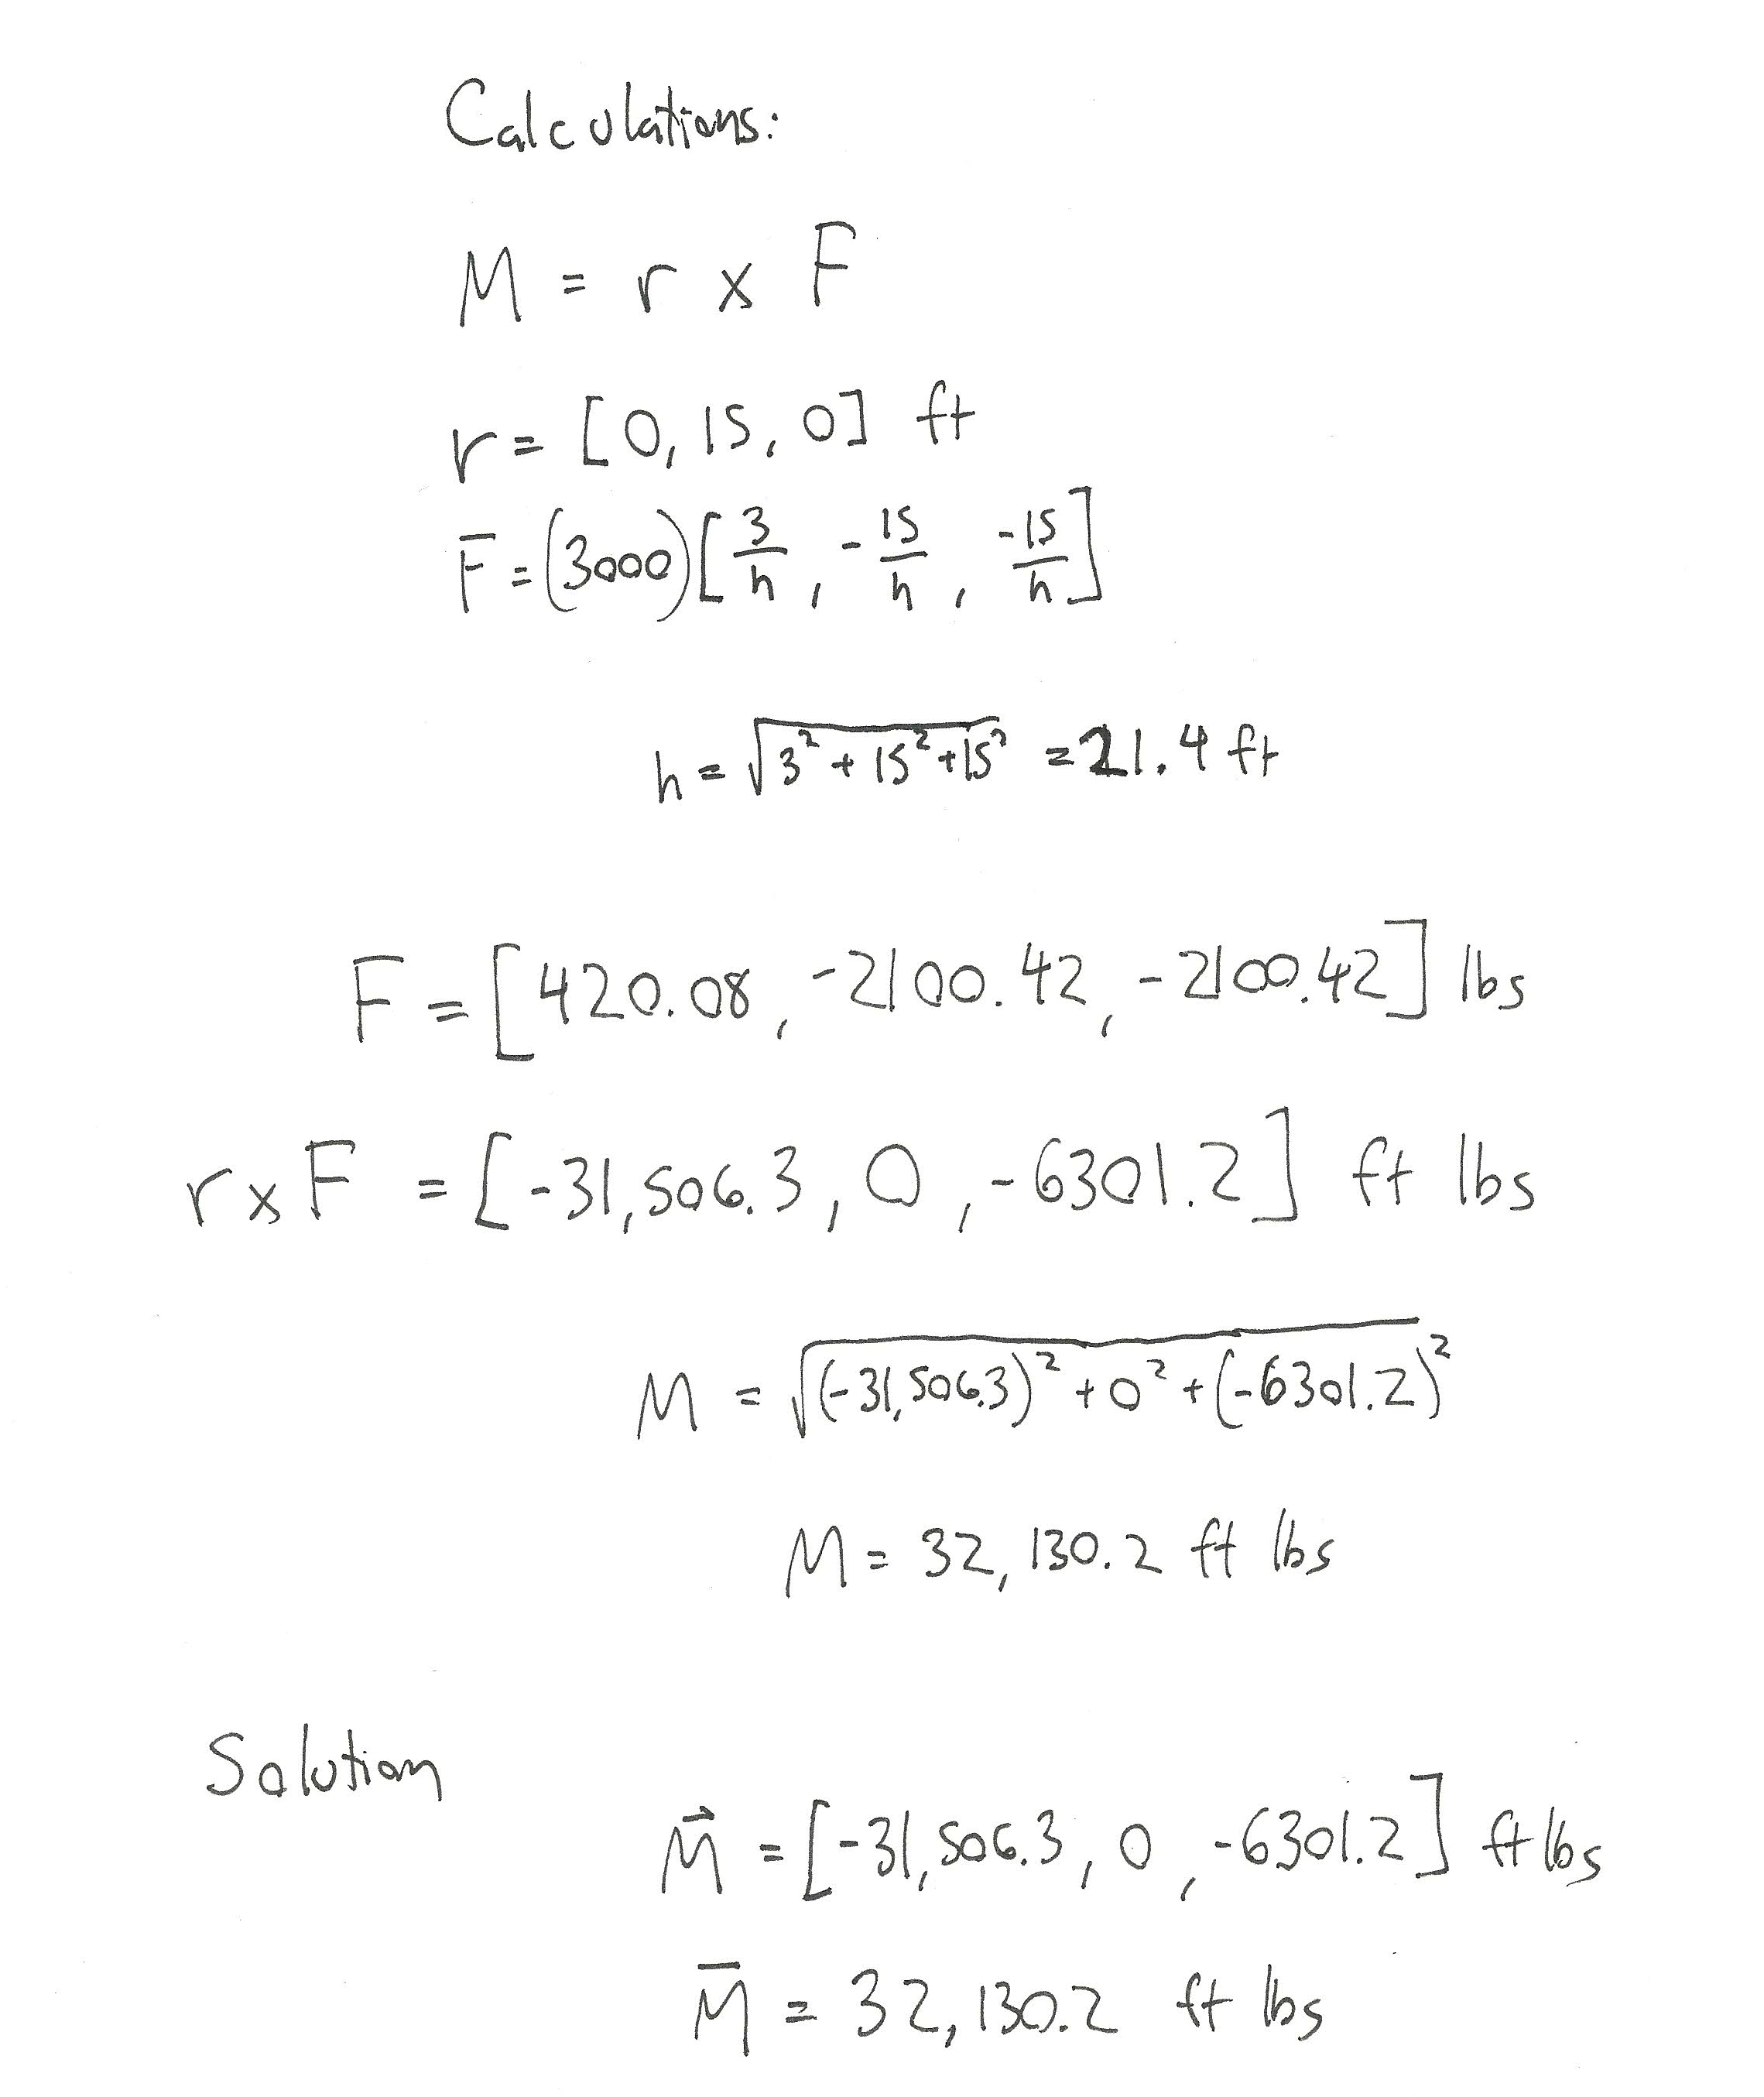 Calculations:
M = r x F
r = [0, 15, 0] ft
F̅ = (3000)[3/h, -15/h, -15/h]
h = √(3² + 15² + 15²) = 21.4 ft
F = [420.08, -2100.42, -2100.42] lbs
r x F = [-31,506.3, 0, -6301.2] ft lbs
M = √((-31,506.3)² + 0² + (-6301.2)²)
M = 32,130.2 ft lbs
Solution
M⃗ = [-31,506.3, 0, -6301.2] ft lbs
M̅ = 32,130.2 ft lbs